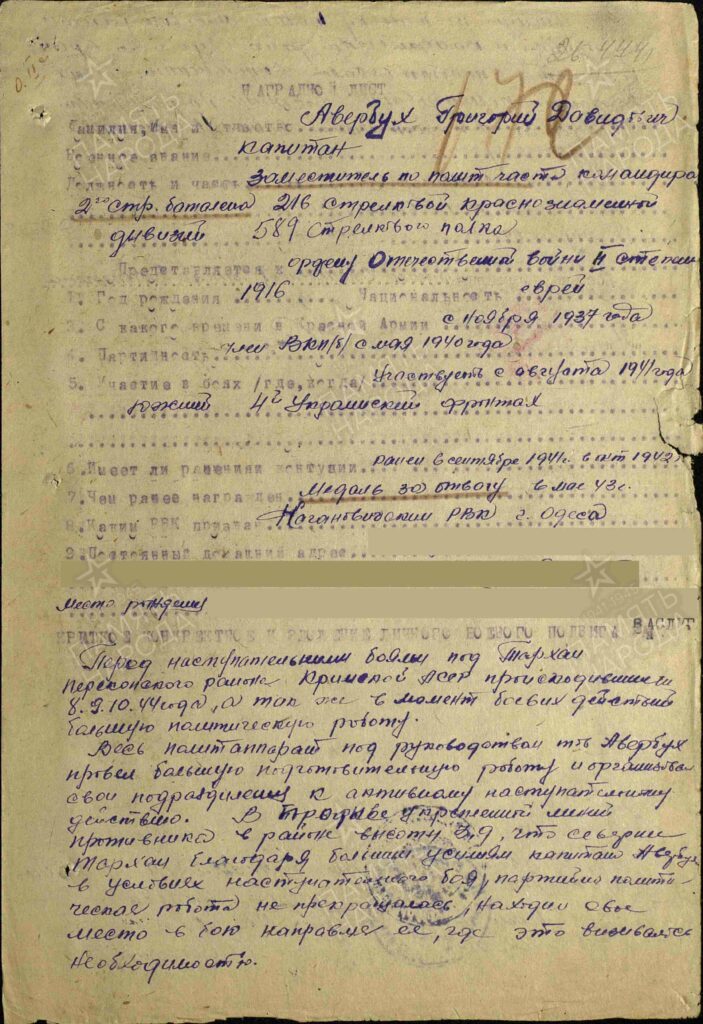 НАГРАДНОЙ ЛИСТ
Фамилия, Имя и Отчество Авербух Григорий Давидович
Военное звание капитан
Должность и часть заместитель по полит части командира
2го стр. баталена 216 стрелковой краснознаменной
дивизий 589 Стрелкового полка
Представляется к ордену Отечественной войны II степени
1. Год рождения 1916 Национальность еврей
3. С какого времени в Красной Армии с ноября 1937 года
4. Партийность член ВКП/б/ с мая 1940 года
5. Участие в боях /где, когда/ Участвует с августа 1941 года
Южний 4й Украинский фронтах
6. Имеет ли ранения и контузии ранен в сентябре 1941г. в окт 1942г
7. Чем ранее награжден Медаль за отвагу в мае 43 г.
8. Каким РВК призван Кагановичский РВК г. Одесса
9. Постоянный домашний адрес
место рождения
КРАТКОЕ КОНКРЕТНОЕ ИЗЛОЖЕНИЕ ЛИЧНОГО БОЕВОГО ПОДВИГА ЗАСЛУГ
Перед наступательними боями под Тархан
Перекопского района Кримской АССР происходившими
8.9.10.44 года, а так же в момент боевих действий
большую политическую роботу.
Весь политаппарат под руководством тов Авербух
провел большую подготовительную роботу и организовал
свои подразделения к активному наступательному
действию. В прорыве укрепленной линии
противника в районе висоту, что северние
Тархан благодаря большим усилиям капитана Авербух
в условиях наступательного боя, партийно полити-
ческая робота не прекращалась, находил свое
место в бою направляя ее, где это визивалось
необходимостю.